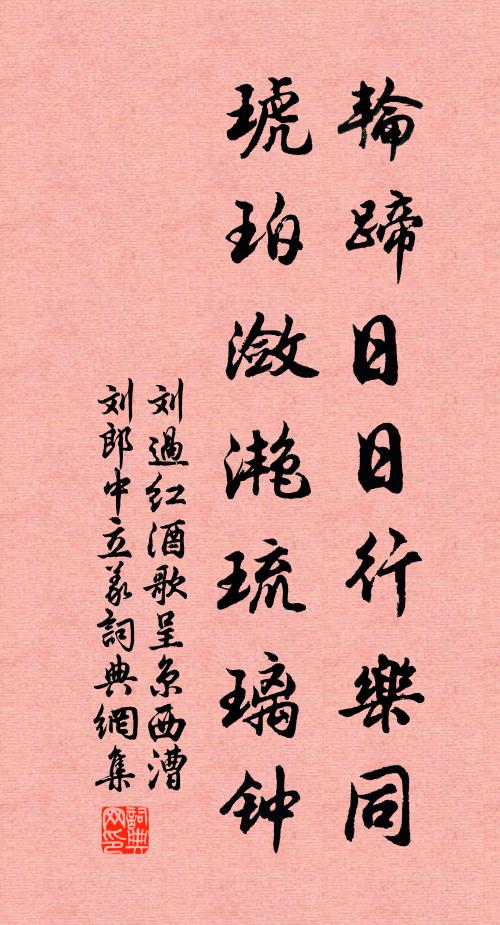 輪蹄日日行樂同
琥珀潋灧琉璃钟
刘過红酒歌呈京西漕
刘郎中立义詞典網集
詞典网印